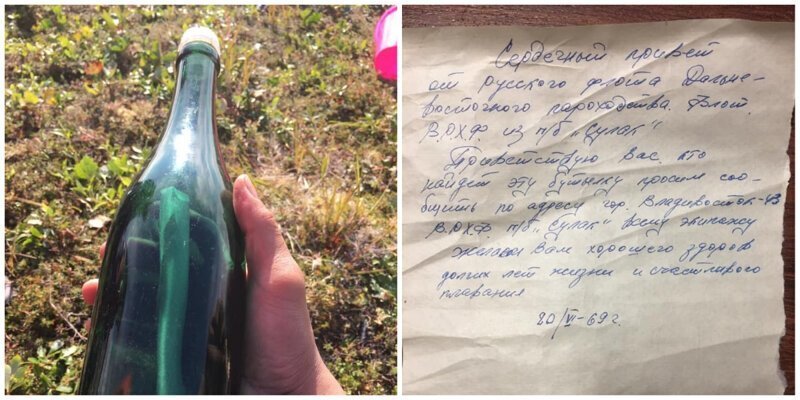 Сердечный привет
от русского флота Дальне-
восточного пароходства. Флот.
В.О.Х.Ф. из п/б „Сулак"!
Приветствую вас, кто
найдет эту бутылку просим соо-
бщить по адресу гор. Владивосток-43
В.О.Х.Ф. п/б „Сулак" всему экипажу
желаем Вам хорошего здоровья
долгих лет жизни и счастливого
плавания
20/VI-69 г.